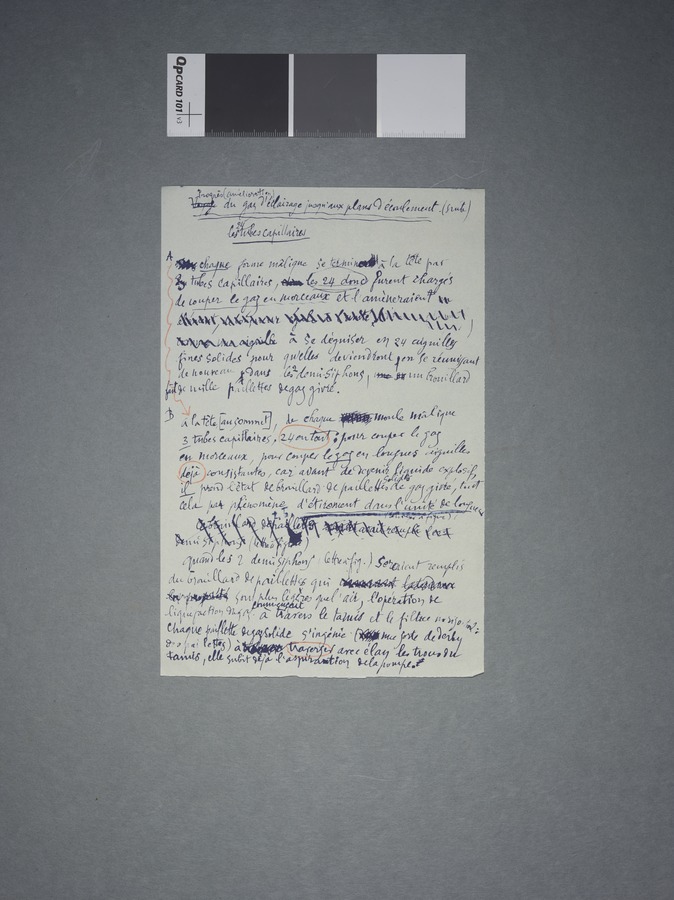 QPCARD 101 v3
Progrès (amélioration)
du gaz d'éclairage jusqu'aux plans d'écoulement. (suite)
les tubes capillaires
A
chaque forme malique se termine à la tête par
3 tubes capillaires, les 24 donc furent chargés
de couper le gaz en morceaux et l'amèneraient
à se déguiser en 24 aiguilles
fines solides pour qu'elles deviendront, en se réunissant
de nouveau, dans les demi siphons, un brouillard
fait de mille paillettes de gaz givré.
B
à la tête [au sommet], de chaque moule malique
3 tubes capillaires. 24 en tout; pour couper le gaz
en morceaux, pour couper le gaz en longues aiguilles
déjà consistantes, car avant de devenir liquide explosif,
il prend l'état de brouillard de paillettes solides de gaz givré, tout
cela par phénomène d'étirement dans l'unité de longueur
quand les 2 demi siphons (lettre fig.) seraient remplis
du brouillard de paillettes qui
sont plus légères que l'air, l'opération de
liquéfaction du gaz commençait à travers le tamis et le filtre
chaque paillette de gaz solide s'ingénie (une sorte de derby
de paillettes) à traverser avec élan les trous du
tamis, elle subit déjà l'aspiration de la pompe.